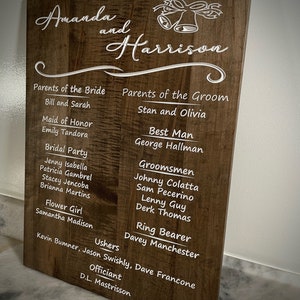 Amanda
and
Harrison
Parents of the Bride
Bill and Sarah
Maid of Honor
Emily Tandora
Bridal Party
Jenny Isabella
Patricia Gambrel
Stacey Jencoba
Brianna Martins
Flower Girl
Samantha Madison
Parents of the Groom
Stan and Olivia
Best Man
George Hallman
Groomsmen
Johnny Colatta
Sam Pecerino
Lenny Guy
Derk Thomas
Ring Bearer
Davey Manchester
Ushers
Kevin Bumner, Jason Swishly, Dave Francone
Officiant
D.L. Mastrisson